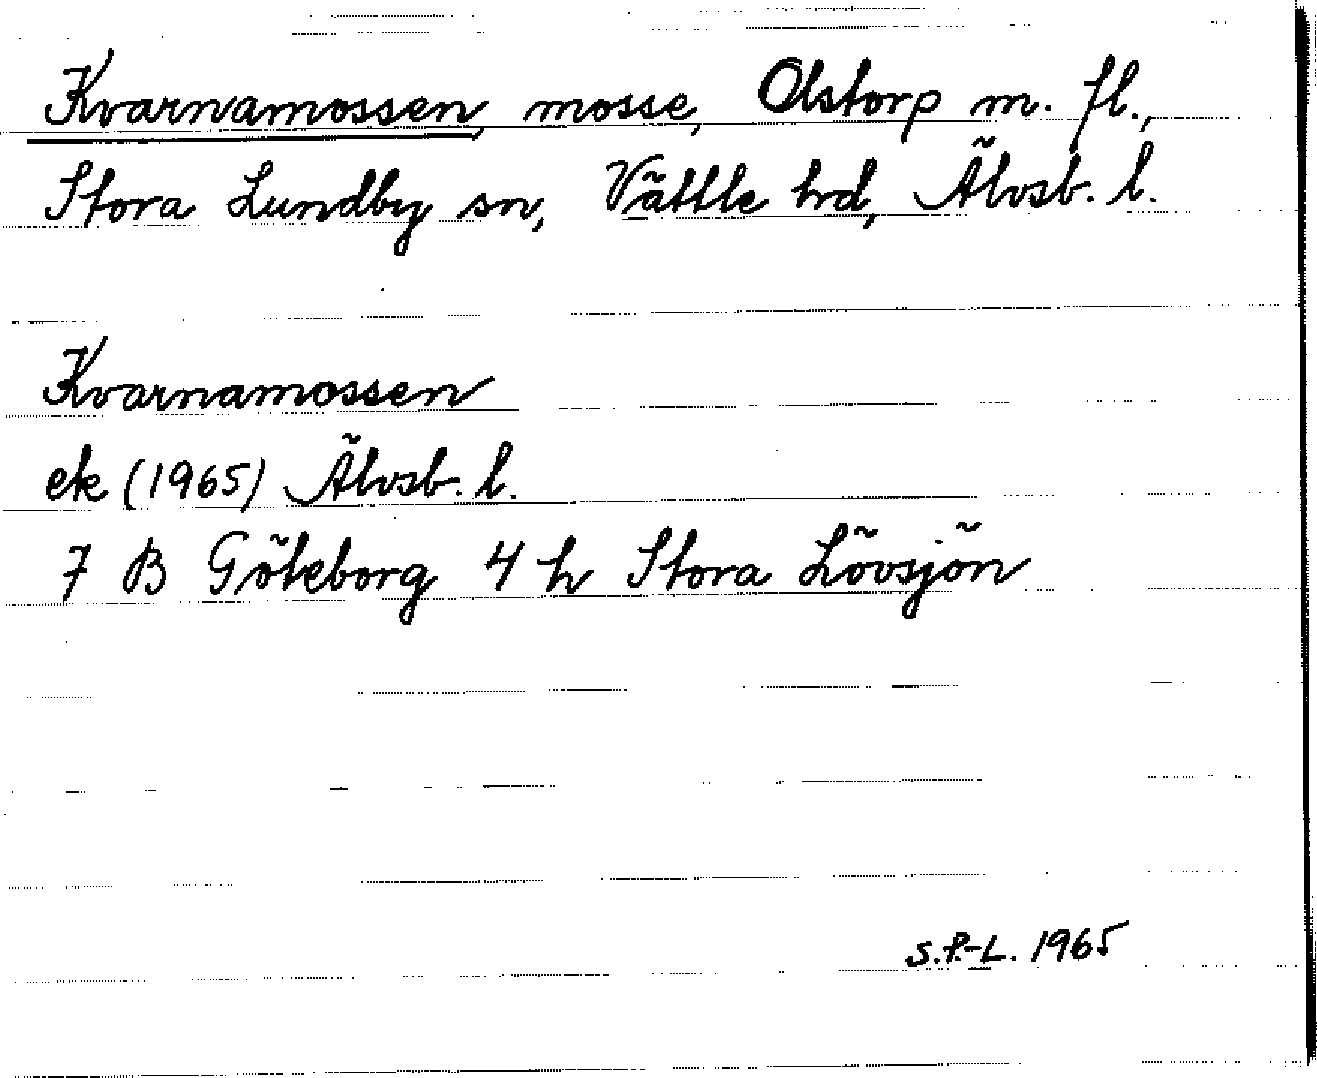 Kvarnamossen, mosse, Olstorp m. fl.,
Stora Lundby sn, Vättle hd, Älvsb. l.
Kvarnamossen
ek (1965) Älvsb. l.
7 B Göteborg 4 h Stora Lövsjön
S.P.-L. 1965